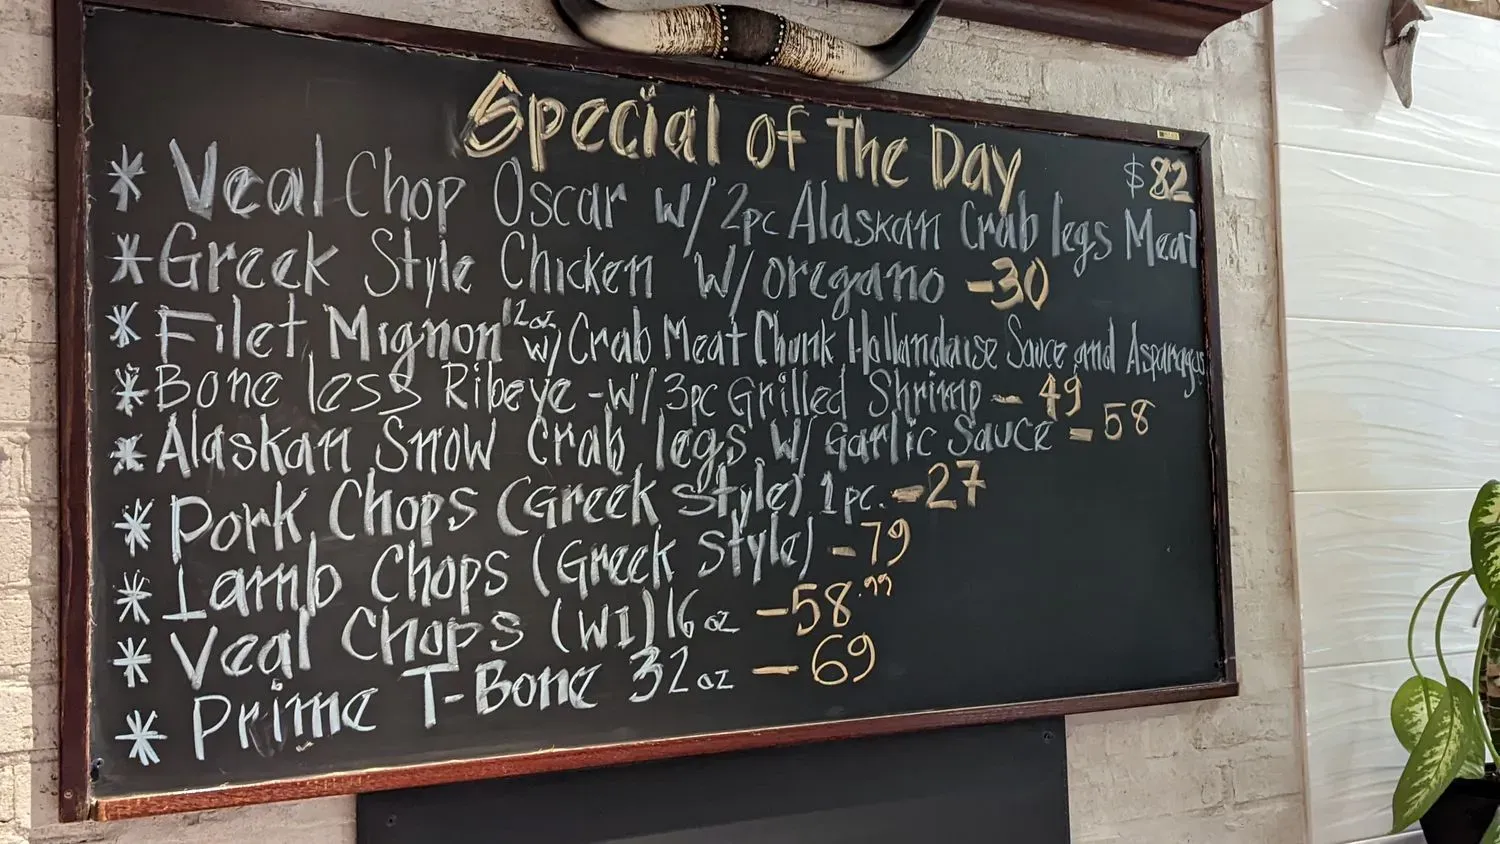 Special of the Day
$82
* Veal Chop Oscar w/ 2pc Alaskan Crab legs Meat
* Greek Style Chicken w/ oregano - 30
* Filet Mignon 12oz w/ Crab Meat Chunk Hollandaise Sauce and Asparagus
* Bone less Ribeye - w/ 3pc Grilled Shrimp - 49
* Alaskan Snow Crab legs w/ Garlic Sauce - 58
* Pork Chops (Greek Style) 1pc. - 27
* Lamb Chops (Greek Style) - 79
* Veal Chops (WI) 16 oz - 58.99
* Prime T-Bone 32 oz - 69